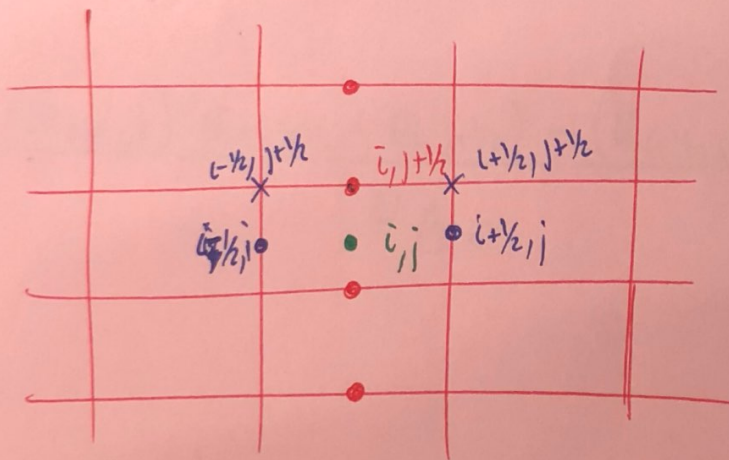 i-1/2, j+1/2
i, j+1/2
i+1/2, j+1/2
i-1/2, j
i, j
i+1/2, j